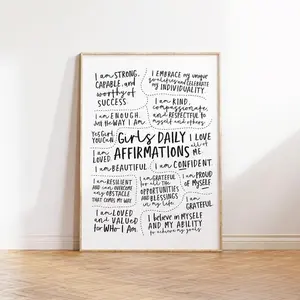 I am STRONG,
CAPABLE, and
worthy of
SUCCESS
I EMBRACE my unique
qualities and CELEBRATE
my INDIVIDUALITY.
I am ENOUGH,
JUST THE WAY I AM
I am KIND,
compassionate,
and RESPECTFUL to
myself and others
Yes Girl,
You CAN!
Girls DAILY
AFFIRMATIONS
I LOVE
all of
ME.
I am
LOVED
I am BEAUTIFUL
I am CONFIDENT.
I am RESILIENT
AND can OVERCOME
any OBSTACLE
THAT COMES MY WAY
I am GRATEFUL
for all the
OPPORTUNITIES
AND BLESSINGS
in my life.
I am PROUD
of MYSELF
I am
GRATEFUL
I am LOVED
and VALUED
for WHO I Am.
I believe in MYSELF
AND MY ABILITY
to achieve my goals